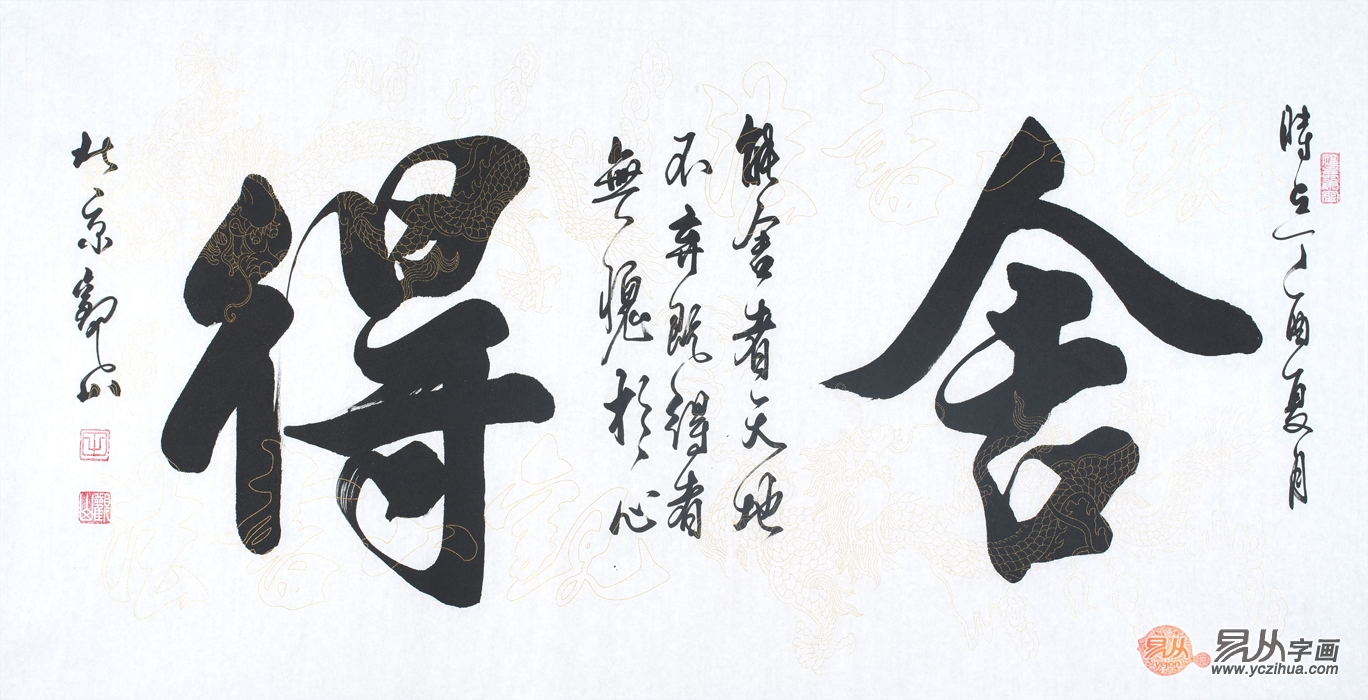 時在丁酉夏月
舍
能舍者天地
不弃既得者
無愧於心
得
北京觀山
易从字画
www.yczihua.com